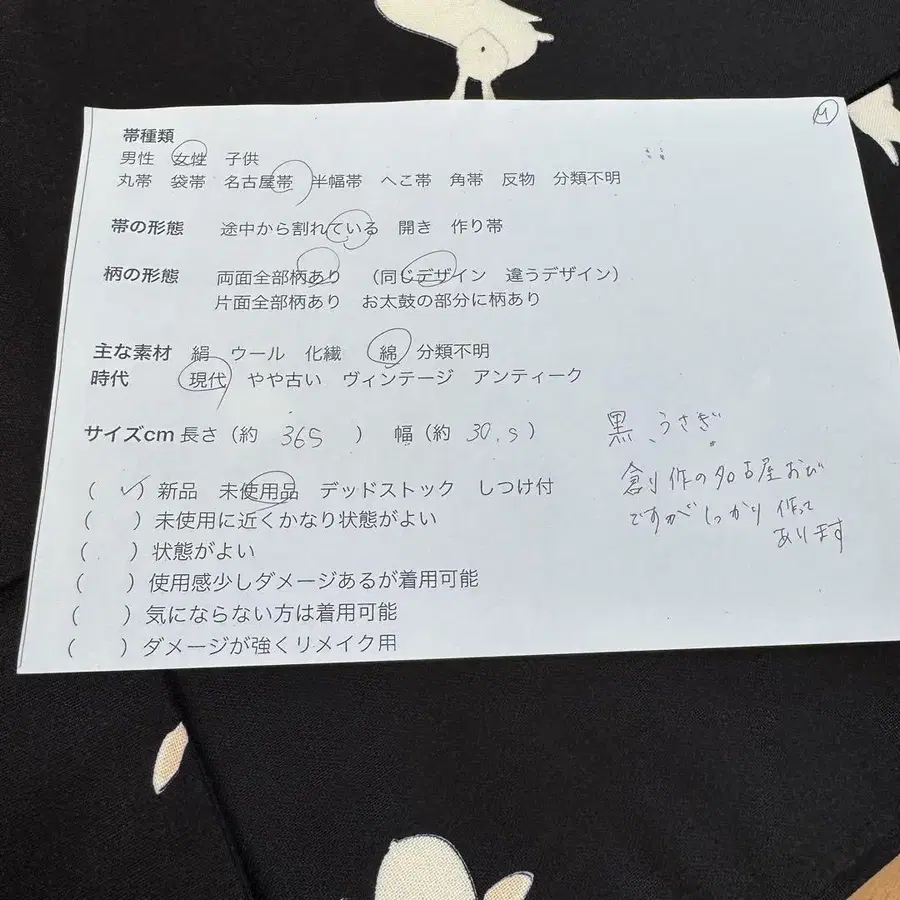 M
帯種類
男性 女性 子供
丸帯 袋帯 名古屋帯 半幅帯 へこ帯 角帯 反物 分類不明
帯の形態 途中から割れている 開き 作り帯
柄の形態 両面全部柄あり (同じデザイン 違うデザイン)
片面全部柄あり お太鼓の部分に柄あり
主な素材 絹 ウール 化繊 綿 分類不明
時代 現代 やや古い ヴィンテージ アンティーク
サイズcm 長さ(約 365 ) 幅(約 30.5 )
黒、うさぎ
( ✓ ) 新品 未使用品 デッドストック しつけ付
( ) 未使用に近くかなり状態がよい
( ) 状態がよい
( ) 使用感少しダメージあるが着用可能
( ) 気にならない方は着用可能
( ) ダメージが強くリメイク用
創作の名古屋おび
ですがしっかり作って
あります